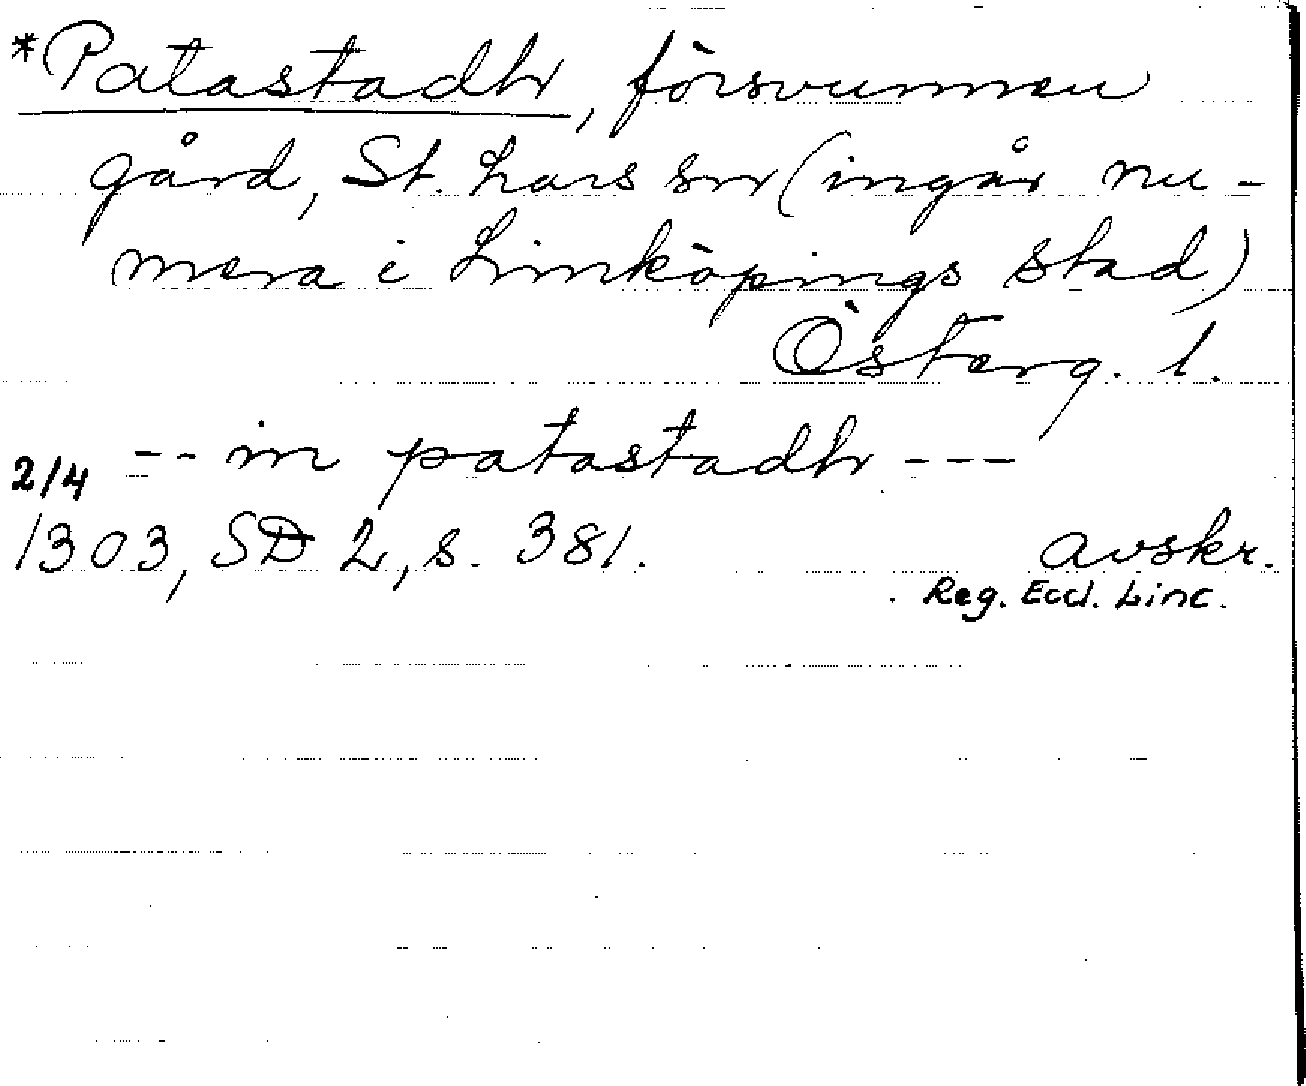 *Patastadhr, försvunnen
gård, St. Lars sn (ingår nu-
mera i Linköpings stad)
Österg. l.
-- in patastadhr ---
2/4
1303, SD 2, s. 381. avskr.
Reg. Eccl. Linc.